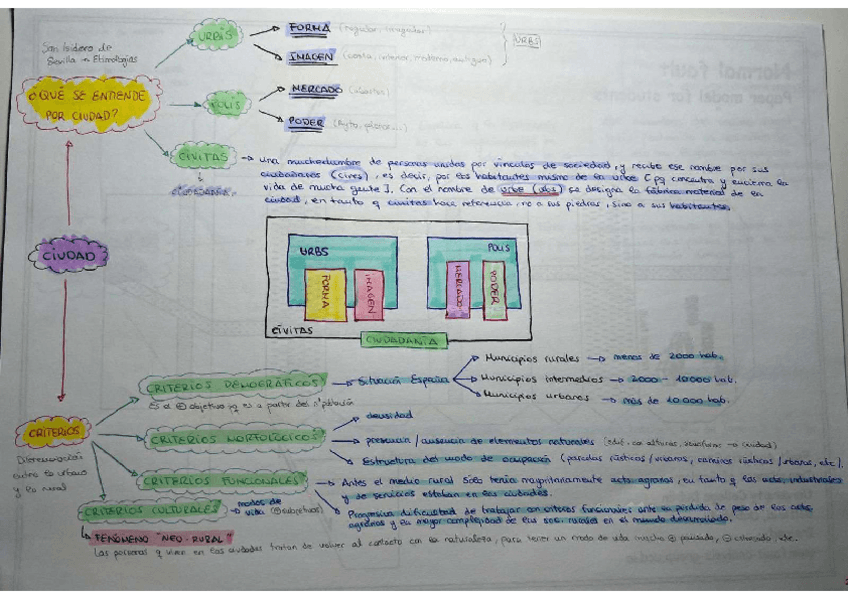 San Isidoro de
Sevilla → Etimologías
¿QUÉ SE ENTIENDE
POR CIUDAD?
URBIS
FORMA (regular, irregular)
IMAGEN (costa, interior, moderna, antigua)
URBS
POLIS
MERCADO
PODER (Ayto, policía...)
CIVITAS → una muchedumbre de personas unidas por vínculos de sociedad, y recibe ese nombre por sus
ciudadanos (cives), es decir, por los habitantes mismos de la urbe [pq concentra y encierra la
vida de mucha gente]. Con el nombre de urbe (urbs) se designa la fábrica material de la
ciudad, en tanto q civitas hace referencia, no a sus piedras, sino a sus habitantes.
CIUDADANÍA
CIUDAD
URBS
FORMA
IMAGEN
POLIS
MERCADO
PODER
CÍVITAS
CIUDADANÍA
CRITERIOS
Diferenciación
entre lo urbano
y lo rural
CRITERIOS DEMOGRÁFICOS → Situación España
Es el ⊕ objetivo pq es a partir del nº población
Municipios rurales → menos de 2000 hab.
Municipios intermedios → 2000 - 10000 hab.
Municipios urbanos → más de 10.000 hab.
CRITERIOS MORFOLÓGICOS
densidad
presencia / ausencia de elementos naturales
Estructura del modo de ocupación (parcelas rústicas / urbanas, caminos rústicos / urbanos, etc).
CRITERIOS FUNCIONALES
Antes el medio rural solo tenía mayoritariamente acts agrarias, en tanto q las acts industriales
y de servicios estaban en las ciudades.
Progresiva dificultad de trabajar con criterios funcionales ante la pérdida de peso de las acts
agrarias y la mayor complejidad de las rurales en el mundo desarrollado.
CRITERIOS CULTURALES → modos de
vida (⊕ subjetivos)
FENÓMENO "NEO-RURAL"
Las personas q viven en las ciudades tratan de volver al contacto con la naturaleza, para tener un modo de vida mucho ⊕ pausado, ⊖ estresado, etc.